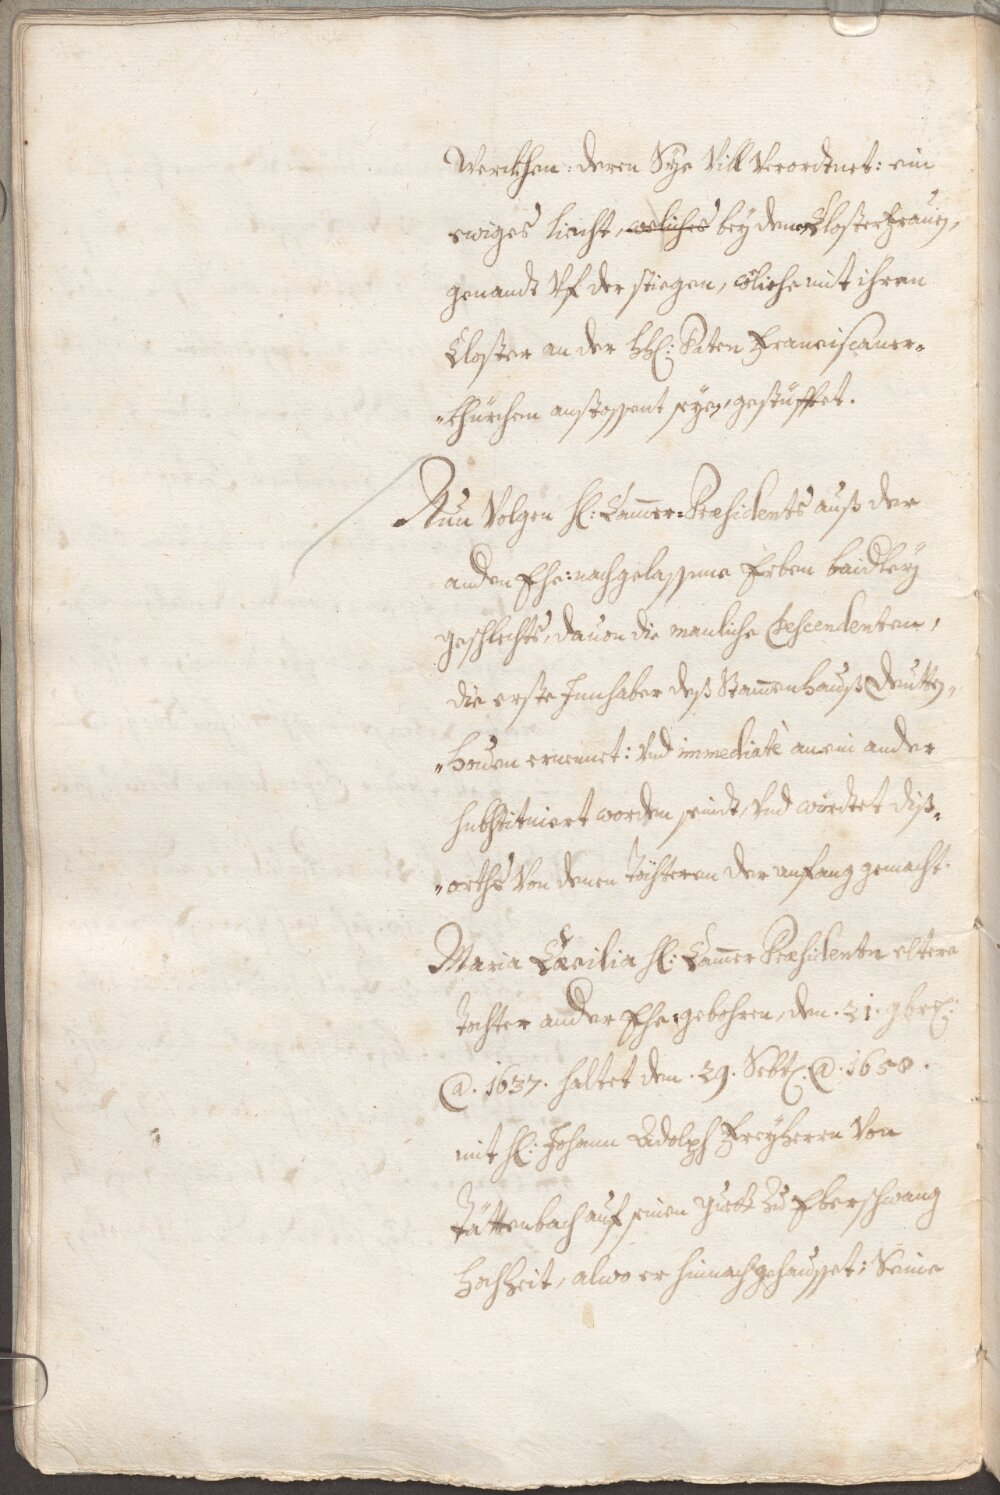 Werckhen: deren Sye vill verordtnet: ein
ewiges liecht, welliches bey denen Closterfrauen,
genandt vf der stiegen, wliche mit ihrem
Closter an der hhl: Paten Franciscaner=
"Khürchen anstossent seyen, gestüfftet.
Nun volgen hl: Cammer=Præsidents auß der
anden Ehe: nachgelassene Erben baidley
geschlechts, dauon die manliche Descendenten,
die erste Innhaber deß Stammenhauß Deutten
"houen ernennet: vnd immediatè an ein ander
substituiert worden seindt, vnd würdtet diß=
"orths von denen Töchteren der anfang gemacht.
Maria Cæcilia hl: Cammer Præsidenten eltere
Tochter ander Ehe, gebohren, den .21. 9bris.
@. 1637. haltet den .29. Sebt. @. 1658.
mit hl: Johann Adolph Freyherrn von
Tättenbach auf seinen guett zu Eberschwang
Hochzeit, alwo er hinnach gehausset: Seine